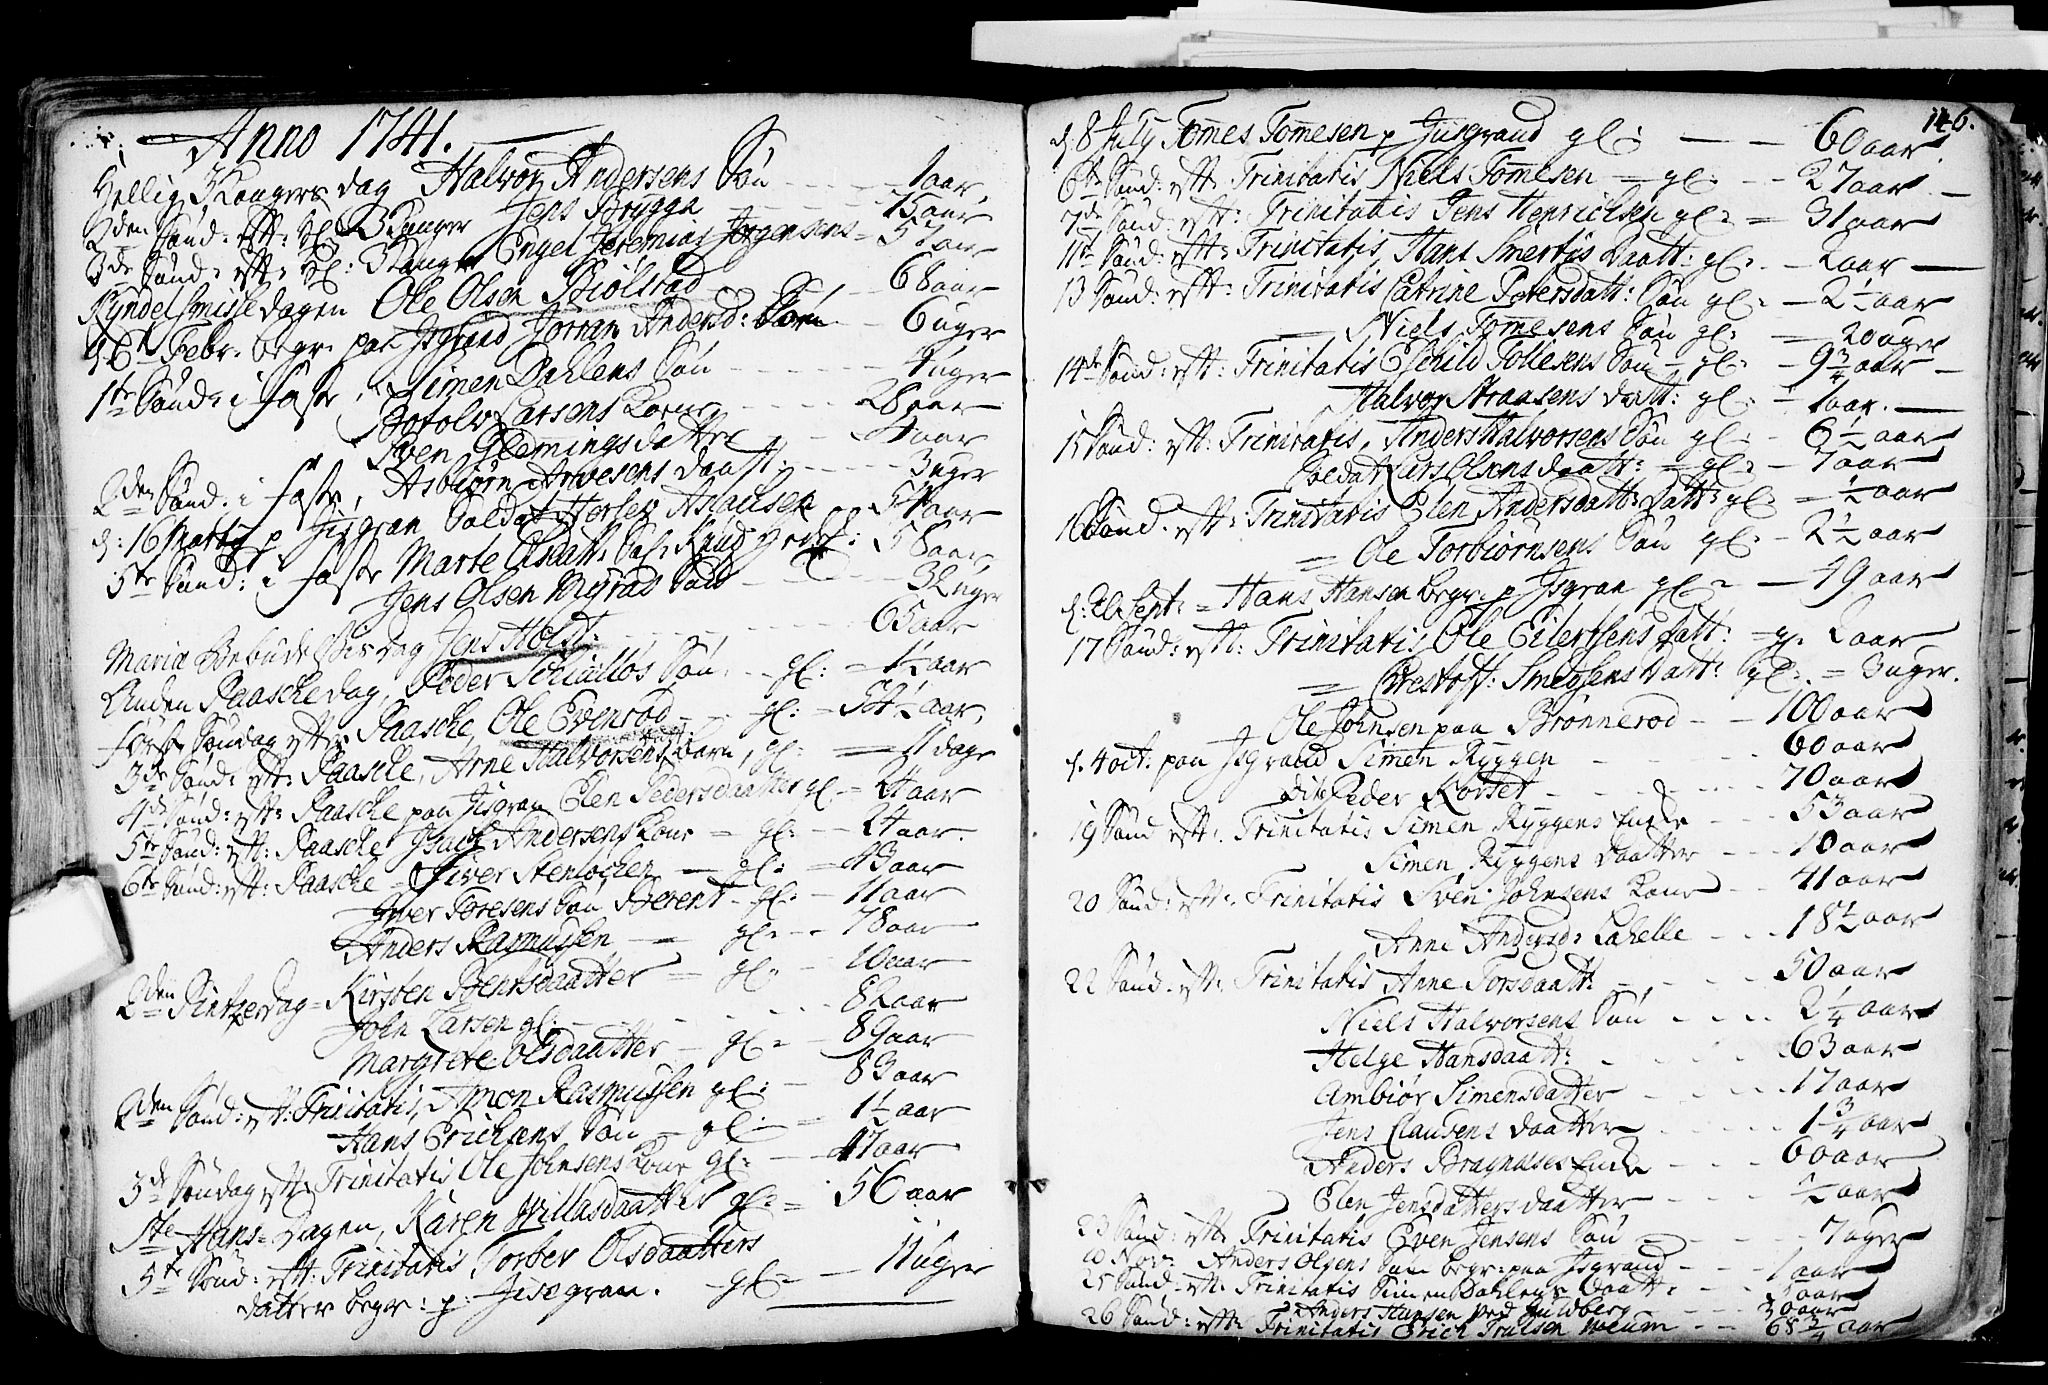 Anno 1741.
Hellig 3 Kongers dag Halvor Andersens Søn - - - 1 aar,
2den Sønd: eft: Hl: 3 Konger Jens Brygga - - - 15 aar
3de Sønd: eft: Hl: 3 Konger Engel Jeremias Jørgensens - 57 aar
Kyndelsmisse dagen Ole Olsen Biølstad - - 68 aar
Febr. begr: paa Jisgrand Jorran Andersd: Søn - - 6 uger
1te Sønd: i Faste, Simen Dahlens Søn - - - - 4 uger
Botolv Larsens Kone - - - - 28 aar
Sven Flemings datter - - 4 aar
2den Sønd: i Faste, Asbiørn Arvesens daatt: - - - - - 3 uger
d: 16 Martij p Jisgran Soldat Herlek Aslaksen 54 aar
5te Sønd: i Faste Marte Olsdatt: Sal: Knud 58 aar
Jens Olsen Myrad Søn - - - 32 uger
Maria Bebudelsis dag Jens Holst: - - - - 65 aar
Anden Paasche dag, Peder Schiälløs Søn - - gl: - 1½ aar
først Søndag eft: Paasche, Ole Evensrød - - gl: - 54½ aar,
3de Sønd: eft: Paasche, Arne Halvorsens barn, gl: - 11 dage
4de Sønd: eft: Paasche paa Jisgran Elen Pedersdaatter gl: - 24 aar
5te Sønd: eft: Paasche Isach Andersens Kone - gl: - 24 aar.
6te Sønd: eft: Paasche - Siver Stenløchen - gl: - 43 aar
Iver Toresens Søn Berent - gl: - 11 aar
Anders Rasmussen - gl: - - 78 aar
2den Pintzedag - Kirsten Bentsdaatter - gl: - 10 aar
John Larsen gl: - - - - - 82 aar
Margrete Olsdaatter - gl: - 89 aar
2den Sønd: eft: Trinitatis, Amon Rasmussen gl: - 83 aar
Hans Erichsens Søn - gl: - 1½ aar
3de Søndag eft: Trinitatis Ole Johnsens Kone gl: - 47 aar
Ste Hans-Dagen, Karen Willasdaatter gl: - 56 aar
5te Sønd: eft: Trinitatis Torber Olsdaatters
datter begr: p: Jisegran. - gl: - 11 uger
146.
d. 8 July Tomes Tomesen p Jisgrand gl: - - 60 aar
6te Sønd: eft: Trinitatis Niels Tomesen - gl: - - 27 aar -
7de Sønd: eft: Trinitatis Jens Henrichsen gl: - 31 aar
11te Sønd: eft: Trinitatis, Hans Smertus Daatt: gl: - 2 aar -
13 Sønd: eft: Trinitatis Catrine Petersdatt: Søn gl: - 2½ aar
- Niels Tomesens Søn gl: - 20 uger
14de Sønd: eft: Trinitatis Eschild Tollesens Søn - gl: - 9¾ aar -
Halvor Straasens datt: gl: - 1 aar. -
15 Sønd: eft: Trinitatis, Anders Halvorsens Søn gl: - 6½ aar
Soldat Lars Olsens daatt: - gl: - 7 aar
16 Sønd: eft: Trinitatis Elen Andersdaatt: datt: gl: - ½ aar
- Ole Torbiørnsens Søn gl: - 2½ aar
d: 21 Sept: - Hans Hansen begr: p Jisgran gl: - 19 aar
17 Sønd: eft: Trinitatis, Ole Eilertsens datt: - g: 2 aar
- Chrestoff: Smedsens Datt: gl: - 3 uger.
Ole Johnsen paa Brønnerød - - 100 aar
d. 4 oct. paa Jsgrand Simen Ryggen - - - - 60 aar
Dito Peder Korset - - - - - - 70 aar
19 Sønd eft: Trinitatis Simen Ryggens Enke - - - 53 aar
Simen Ryggens daatter - - - 10 aar
20 Sønd: eft: Trinitatis Sven Johnsens Kone - - - 41 aar
Anne Andersd: Lahelle - - - 18½ aar
22 Sønd: eft: Trinitatis Anne Torsdaatt: - - - - 50 aar
Niels Halvorsens Søn - - - - 2¼ aar
Helge Hansdaatt: - - - - - 63 aar
Ambiør Simensdatter - - - - 17 aar
Jens Clausens daatter - - - - 1¾ aar
Anders Bragnæses Enke - - - - 60 aar
Elen Jensdatters daatter - - - - ½ aar
23 Sønd: eft: Trinitatis Even Jensens Søn - - - - - 7 uger
10 Nov: Anders Olsens Søn begr: paa Jsgrand - - - 1 aar
25 Sønd: eft: Trinitatis Simen Dahlens Daatt: - - 5 aar
Anders Hansen ved Guldberg - - - - 30 aar
26 Sønd: eft: Trinitatis Erich Trulsen Weum - - - 68¾ aar